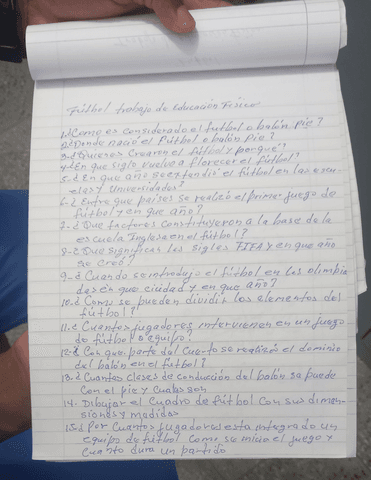 Fútbol trabajo de Educación Física
1.¿Como es considerado el futbol o balon pie?
2¿Donde nació el Fútbol o balón pie?
3.¿Quienes Crearon el fútbol y porqué?
4¿En que siglo vuelve a florecer el fútbol?
5.¿En que año se extendió el fútbol en las escu
elas y Universidades?
6.¿Entre que paises se realizó el primer juego de
fútbol y en que año?
7-¿Que factores Constituyeron a la base de la
escuela Inglesa en el fútbol?
8-¿Que significas las siglas FIFA y en que año
se Creó?
9-¿Cuando se introdujo el fútbol en las olimpia
das en que ciudad y en que año?
10.¿Como se pueden dividir los elementos del
fútbol?
11.¿Cuantos jugadores intervienen en un juego
de fútbol o equipo?
12-¿Con que parte del Cuerpo se realiza el dominio
del balón en el fútbol?
13.¿Cuantas clases de conducción del balón se puede
Con el pie y Cuales son
14- Dibujar el Cuadro de fútbol Con sus dimen-
siones y medidas
15¿Por Cuantos jugadores esta integrado un
equipo de fútbol Como se inicia el juego y
Cuanto dura un partido